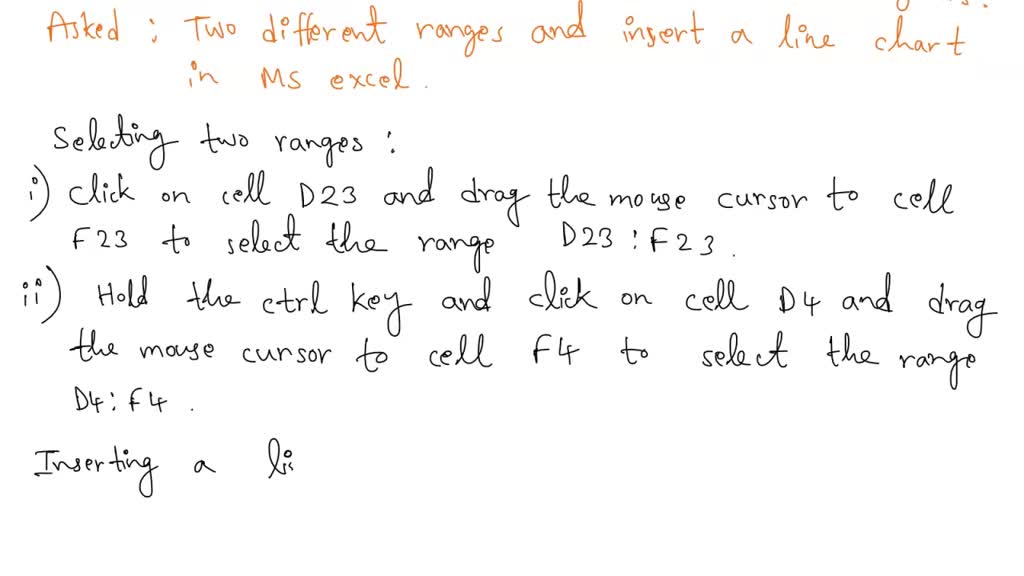 Asked : Two different ranges and insert a line chart
in MS excel.
Selecting two ranges :
i) Click on cell D23 and drag the mouse cursor to cell
F23 to select the range D23 : F23.
ii) Hold the ctrl key and click on cell D4 and drag
the mouse cursor to cell F4 to select the range
D4 : F4 .
Inserting a li